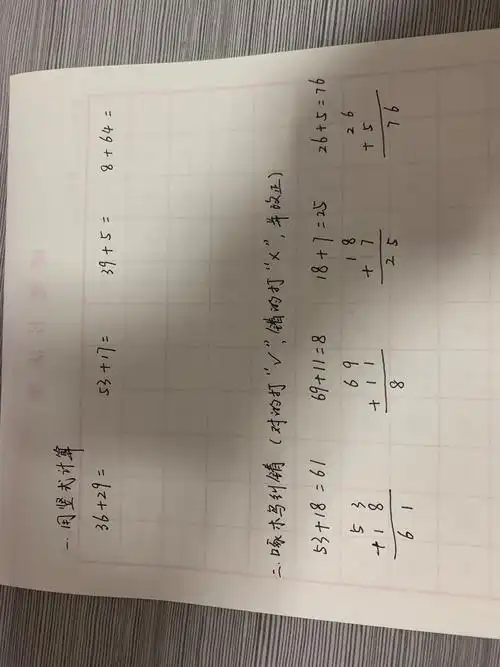 一.用竖式计算
36+29= 53+17= 39+5= 8+64=
二.啄木鸟纠错 (对的打"√",错的打"×",并改正)
53+18=61 69+11=8 18+7=25 26+5=76
5 3 6 9 1 8 2 6
+ 1 8 + 1 1 + 7 + 5
6 1 8 2 5 7 6